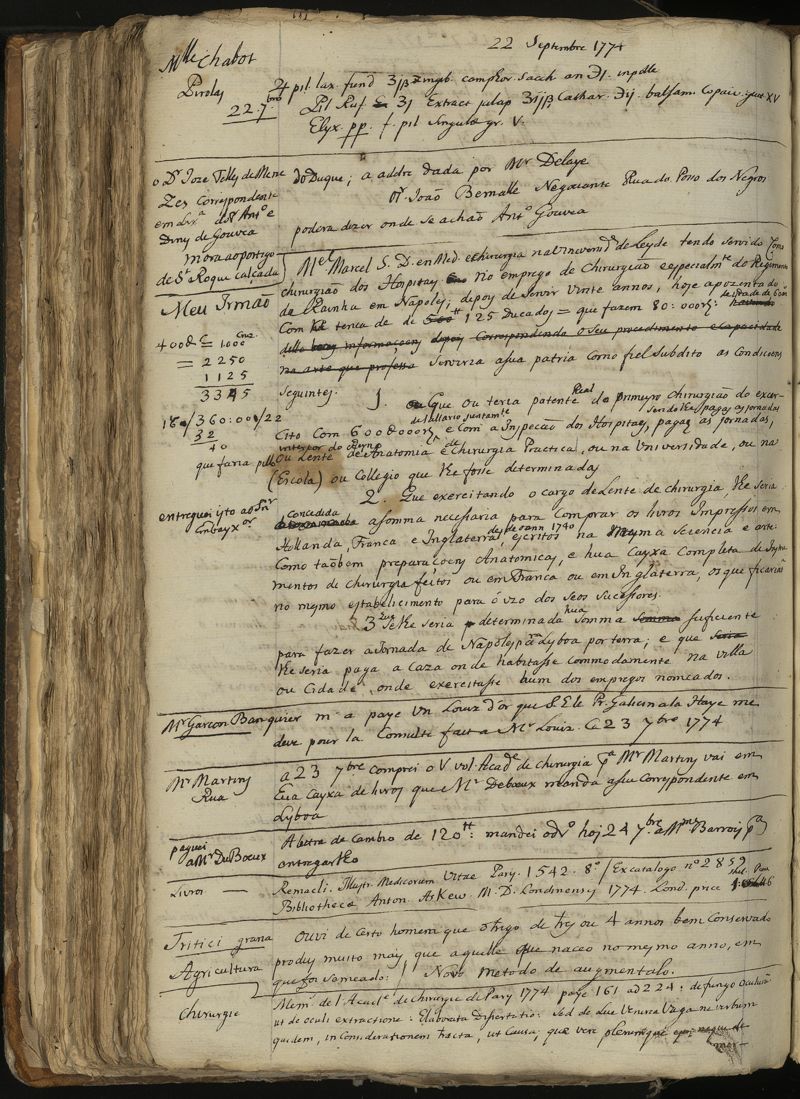 22 Septembre 1774
Mlle Chabot
Pirolas
22 7bro
pil. lax. fund 3jβ camphor. sacch. an Ɔj.
Pil. Ruf 3j Extract jalap 3ijβ Cathar. Ɔij. balsam. Copaiv. gutt XV
Elyx. pp. f. pil singula gr. V.
o Dr Joze Telles de Mene
zes Correspondente
em Lxa dos Sres Anto e
Diny de Gouvea
mora ao portigo
de St Roque calçada
do Duque; a addre dada por Mr Delaye
Mr João Bernalle Negociante Rua do Posso dos Negros
poderá dizer onde se achaõ Anto Gouvea
Meu Irmão
400 = 1000
= 2250
1125
3345
160/360:000/22
32
40
que faria
entreguei isto ao Snr
Embayxor
Mel Marcel S. D. en Med. e chirurgia na Universide de Leyde tendo servido Como
chirurgião dos Hospitaes no emprego de Chirurgião e especialmte do Regimento
da Rainha em Napoles; depois de servir vinte annos, hoje apozentado
Com tença de 560tt 125 Ducados = que fazem 80:000rs: de idade de 60 an
bens informaçoens depois Correspondendo o seu procedimento e Capacidade
na arte que professa serviria a sua patria Como fiel subdito as Condiciens
seguintes. 1. Que ou teria patente Real de primeyro chirurgião do exer-
cito Com 600$000rs de sallario juntamte e Com a Inspecaõ dos Hospitaes, sendo lhe pagas as jornadas
pagas as jornadas,
ou Lente de Anatomia e de Chirurgia Practica, ou na Universidade, ou na
(Escola) ou Collegio que lhe fosse determinado
2o. Que exercitando o cargo de Lente de chirurgia, lhe seria
concedida a somma necessaria para comprar os livros Impressos em
Hollanda, Franca e Inglaterra, desde o ann 1740 escritos na mesma sciencia e arte:
Como taõbem preparaçoens Anatomicas, e hua Cayxa Completa de Instru
mentos de chirurgia feitos ou em Franca ou em Inglaterra, os que ficariaõ
no mesmo estabelicimento para o uzo dos seos sucessores.
3 Que lhe seria determinada hua somma sufficiente
para fazer a Jornada de Napoles pa Lysboa por terra; e que
lhe seria paga a Caza onde habitasse commodamente na villa
ou Cidade, onde exercitasse hum dos empregos nomeados.
Mr Garcon Banquier m-a payé Un Louiz d'or que S. Ele Pr. Galicin a la Haye me
deve pour la Consulte fait a Mr Louiz. Ce 23 7bre 1774
Mr Martins
Rua
a 23 7bre Comprei o V vol. Acade de chirurgia pa Mr Martins vai em
hua Cayxa de livros que Mr Debœux manda a seu Correspondente em
Lysboa
paguei
a Mr Du Bœux
A letra de cambio de 120tt: mandei odro hoj 24 7bre a Mr Barrois pa
entregarlho
Livros —
Remacli. Illustr. Medicorum Vitae Parys. 1542. 8o / Ex catalogo no 2859
Bibliotheca Anton. Askew. M.D. Londinensis 1774. Lond. price
Tritici grana
Agricultura
Ouvi de certo homem que o trigo de tres ou 4 annos bem Conservado
produs muito mais que aquelle que naceo no mesmo anno, em
que foi semeado: / Novo metodo de augmentalo.
Chirurgie
Mem. de l'Acade de Chirurgie de Parys 1774 page 161 ad 224: de fungo oculorũ
ut de oculi extractione: Elaborata Dissertatio: sed de Lue Venerea Vaga ne verbum
quidem, in Considerationem tracta, ut Causa, quæ vere plerumque